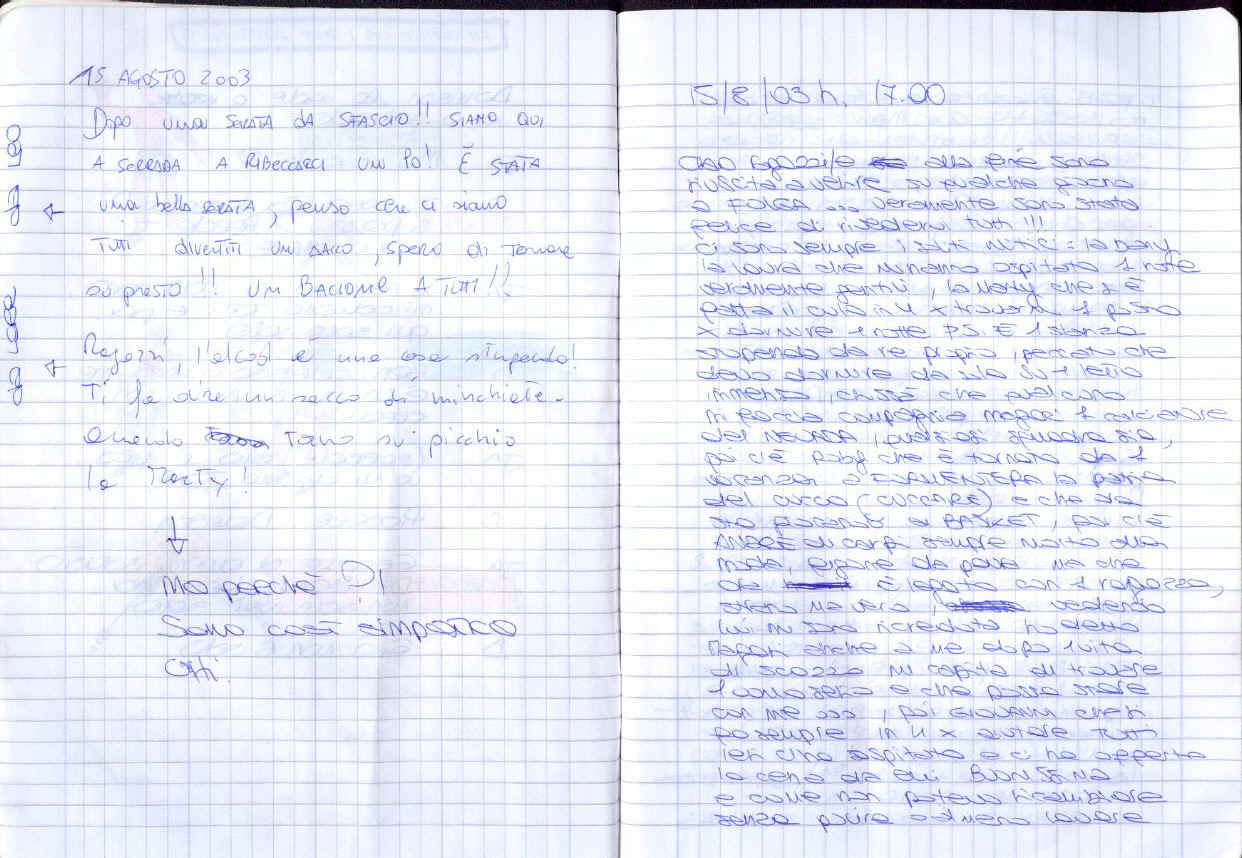 15 AGOSTO 2003
Dopo una SERATA dA SFASCIO!! SIAMO QUI
A SERRADA A RIBECCARCI UN PO'! È STATA
una bella SERATA, penso che ci siamo
TUTTI divertiti UN SACCO, SPERO di Tornare
su presto!! UN BACIONE A TUTTI!!
Ragazzi, l'alcool è una cosa stupenda!
Ti fa dire un sacco di minchiate.
Quando torno su picchio
la Marty!
Ma perché?!
Sono così simpatico
15/8/03 h. 17.00
Ciao Ragazzi/e alla fine sono
riuscita a venire su qualche giorno
a FOLGA... veramente sono stata
felice di rivedervi tutti!!!
ci sono sempre i soliti mitici = la Dany
la Laura che mi hanno ospitato 1 notte
veramente gentili, la Marty che s'è
fatta il culo in 4 x trovarmi 1 posto
x dormire 1 notte P.S. È 1 stanza
stupenda da re proprio, peccato che
devo dormire da sola su 1 letto
immenso, chissà che qualcuno
mi faccia compagnia magari 1 calciatore
del
poi c'è Roby che è tornato da 1
vacanza a FORMENTERA la patria
del cucco (CUCCARE) e che sta
sta giocando a BASKET, poi c'è
di Carpi sempre molto alla
moda, ma che
che è legato con 1 ragazza,
strano ma vero, vedendo
lui mi sono ricreduta ho detto
magari anche a me dopo 1 vita
di mi capita di trovare
1 uomo serio e che possa stare
con me..., poi Giovanni che si
fa sempre in 4 x aiutare tutti
ieri ci ha ospitato e ci ha offerto
la cena da lui BUONISSIMA
e come non potevo ricambiare
senza pulire o almeno lavare